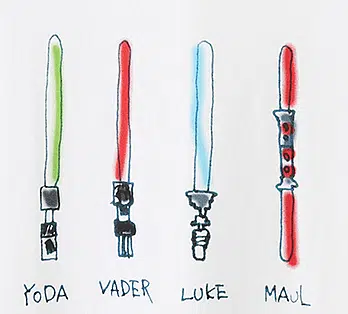 YODA VADER LUKE MAUL